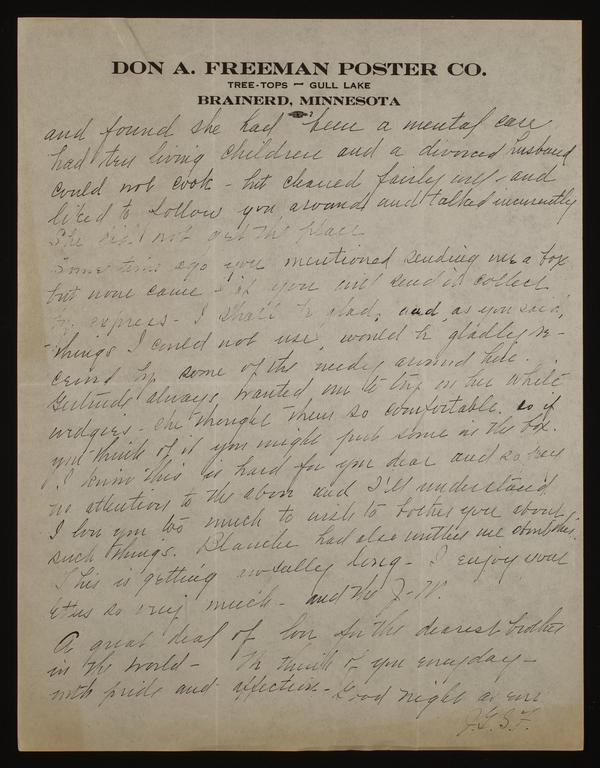 DON A. FREEMAN POSTER CO.
TREE-TOPS — GULL LAKE
BRAINERD, MINNESOTA
and found she had been a mental case
had ten living children and a divorced husband
could not cook - but cleaned fairly well - and
liked to follow you around and talked incessantly
She did not get the place
Some time ago you mentioned sending me a box
but none came - if you will send it collect
by express - I shall be glad, and, as you said,
things I could not use, would be gladly re-
ceived by some of the needy around here.
Gertrude always wanted me to try on her white
wedgies - she thought them so comfortable, so if
you think of it you might put some in the box.
I know this is hard for you dear and so pay
no attention to the above and I'll understand
I love you too much to wish to bother you about
such things. Blanche had also written me about this.
This is getting awfully long - I enjoy your
letters so very much - and the J-W.
A great deal of love for the dearest brother
in the world - We think of you everyday -
with pride and affection - Good night as ever
J.G.S.F.